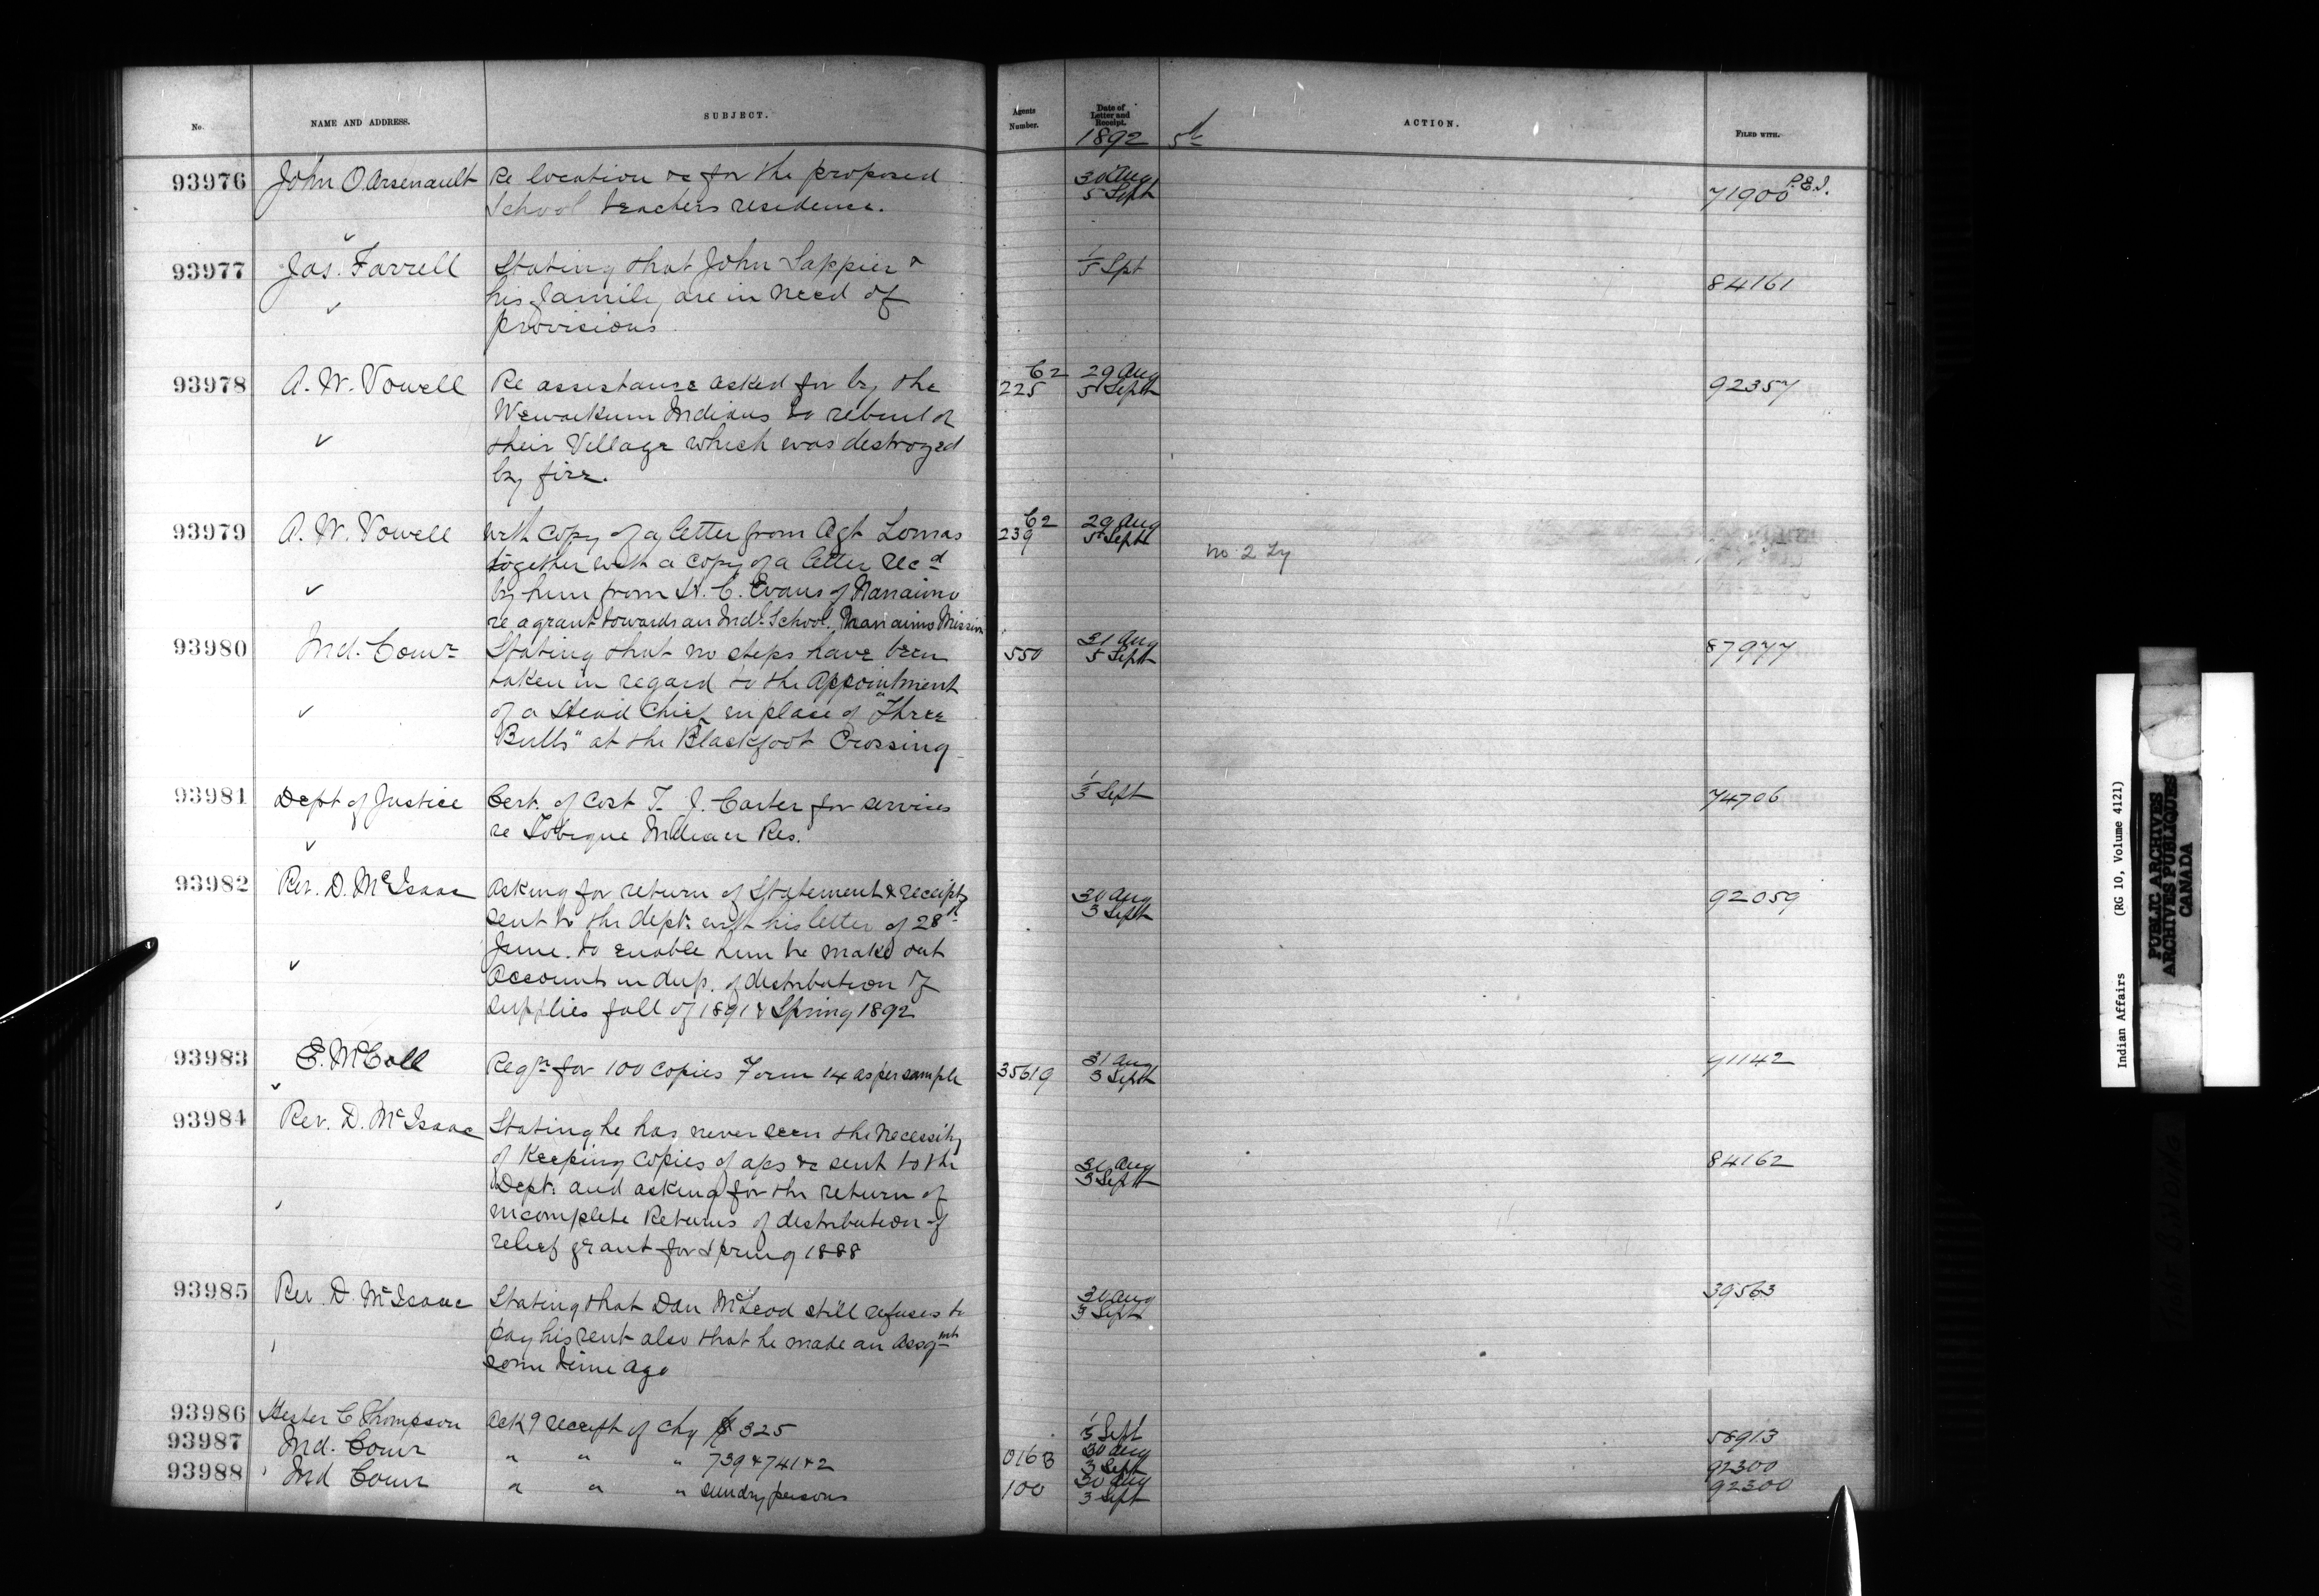 No.
NAME AND ADDRESS.
SUBJECT.
Agents Number.
Date of Letter and Receipt.
1892
ACTION.
FILED WITH.
93976 John O. Arsenault Re location &c for the proposed 30 Aug P.E.I.
School teachers residence. 5 Sept 71900
93977 Jas. Farrell Stating that John Sappier & 1/5 Spt
his family are in need of 84161
provisions
93978 A. W. Vowell Re assistance asked for by the C2 225 29 Aug 5 Sept 92357
Wewaikum Indians to rebuild
their Village which was destroyed
by fire.
93979 A. W. Vowell with copy of a letter from Agt Lomas C2 239 29 Aug 5 Sept
together with a copy of a letter recd no 2
by him from C. Evans of Nanaimo
re a grant towards an Indn School. Nanaimo Mission
93980 Ind. Comr Stating that no steps have been 550 31 Aug 5 Sept 87977
taken in regard to the Appointment
of a Head Chief in place of "Three
Bulls" at the Blackfoot Crossing
93981 Dept of Justice Cert. of Cost T. J. Carter for services Sept 74706
re Tobique Indian Res.
93982 Rev. D. McIsaac Asking for return of Statement & receipts 30 Aug 3 Sept 92059
sent to the dept. with his letter of 28th
June. to enable him to make out
Accounts in dup. of distribution of
supplies fall of 1891 & Spring 1892
93983 E. McColl Reqn for 100 copies Form 14 as per sample 35619 31 Aug 3 Sept 91142
93984 Rev. D. McIsaac Stating he has never seen the necessity
of keeping copies of aps &c sent to the 31 Aug 3 Sept 84162
Dept. and asking for the return of
incomplete Returns of distribution of
relief grant for Spring 1888
93985 Rev. D. McIsaac Stating that Dan McLeod still refuses to 3 Sept 39563
pay his rent also that he made an assgmt
some time ago
93986 Hester C Thompson Ackg receipt of chq 325 Sept 58913
93987 Ind. Comr " " " 739 & 741 & 2 30 Aug 3 Sept 92300
93988 Ind Comr " " " sundry persons 100 30 Aug 3 Sept 92300
Indian Affairs (RG 10, Volume 4121)
PUBLIC ARCHIVES
ARCHIVES PUBLIQUES
CANADA